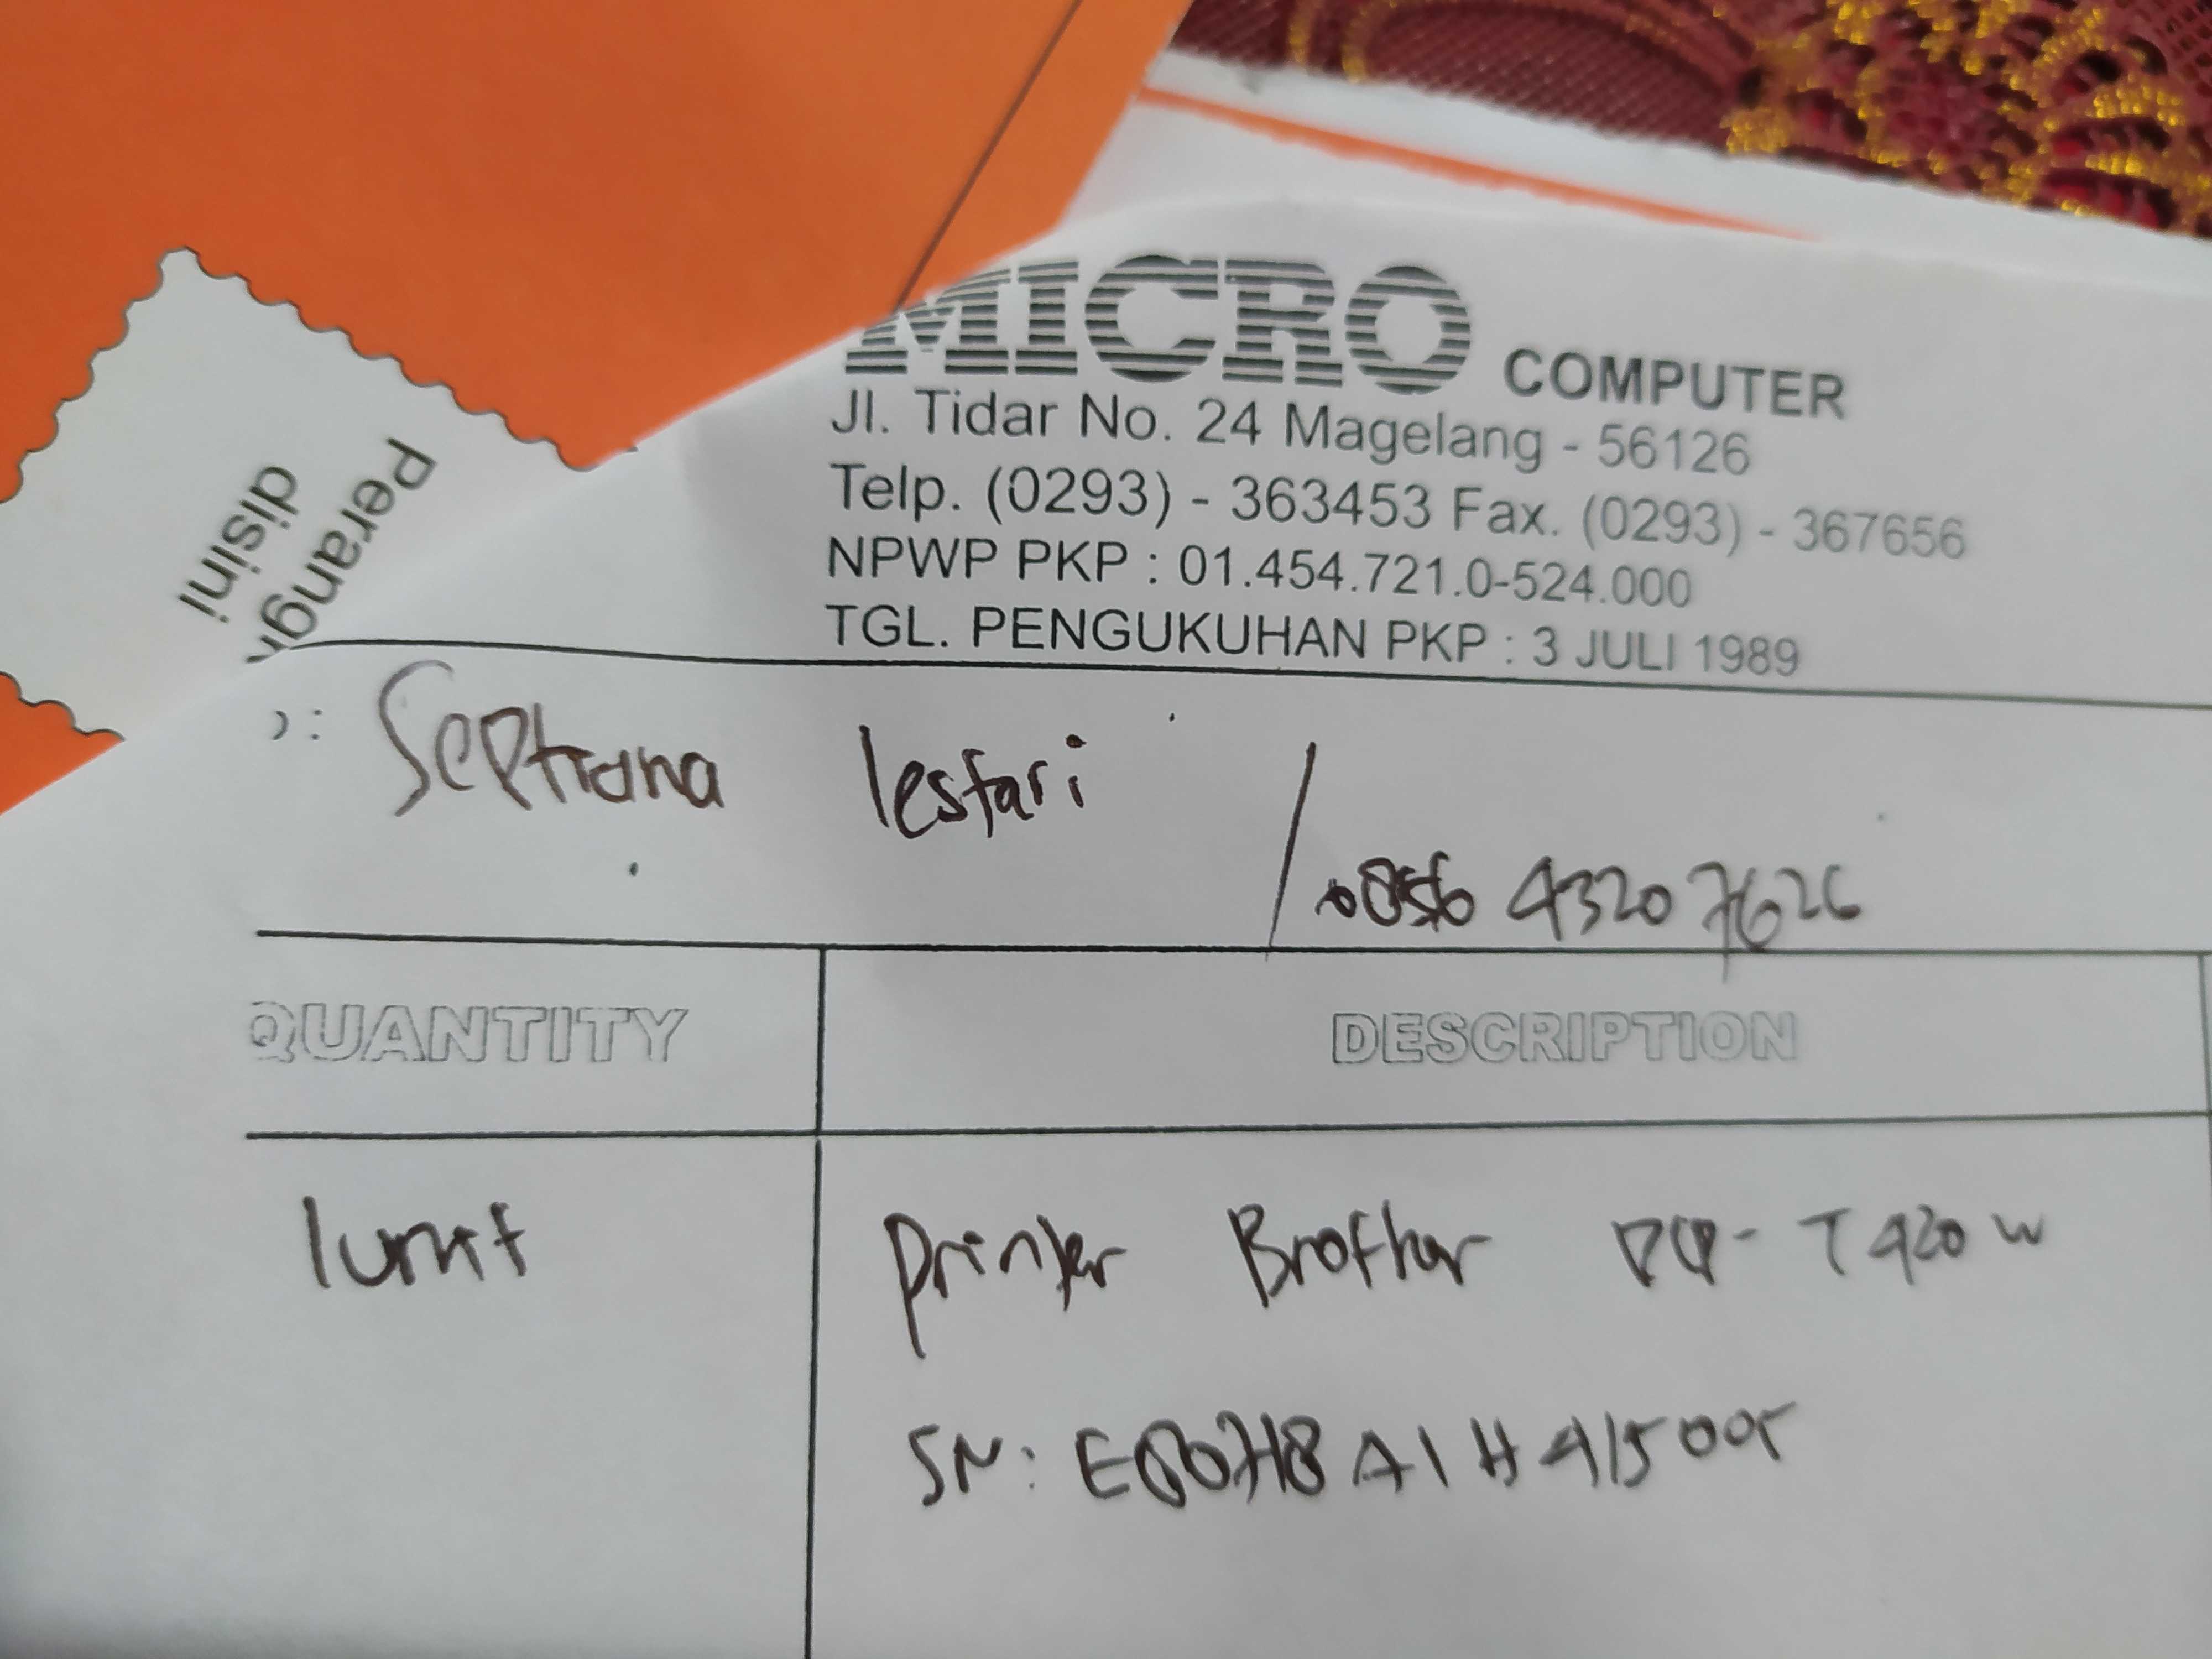 MICRO COMPUTER
Jl. Tidar No. 24 Magelang - 56126
Telp. (0293) - 363453 Fax. (0293) - 367656
NPWP PKP : 01.454.721.0-524.000
TGL. PENGUKUHAN PKP : 3 JULI 1989
Perang
disini
: Septiana lestari / 0856 4320 7626
QUANTITY DESCRIPTION
1unit Printer Brother DCP- T420 W
SN: